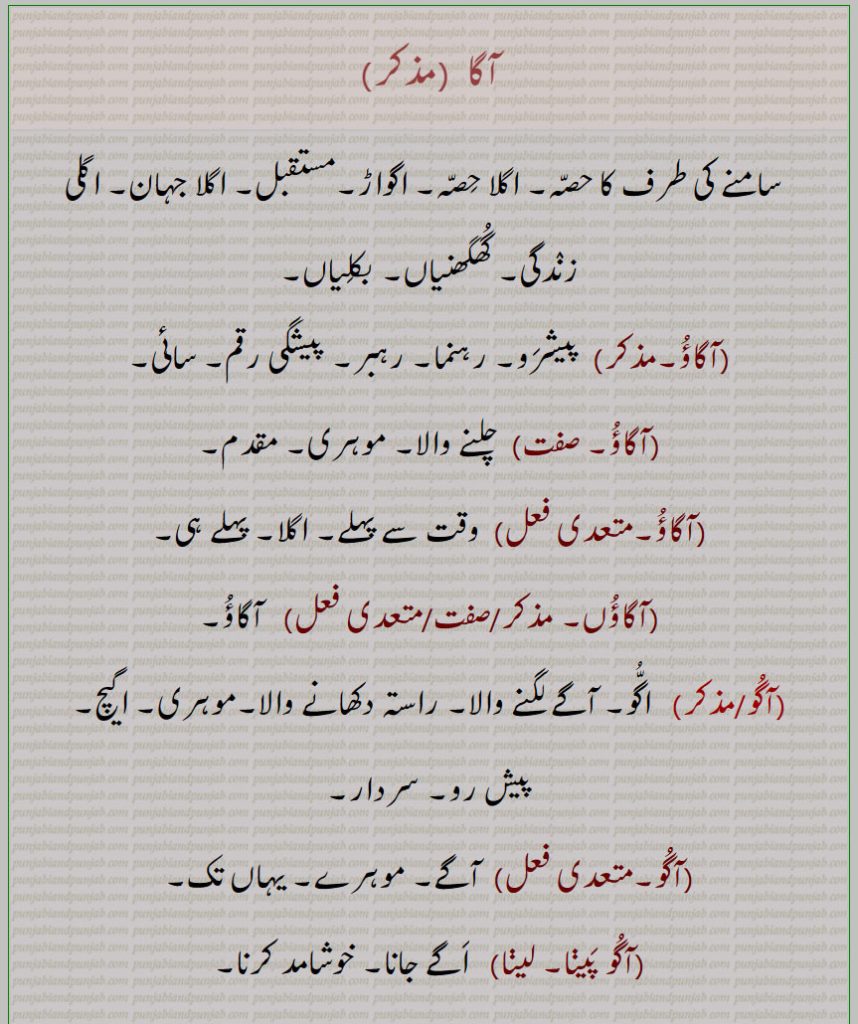 آگا (مذکر)
سامنے کی طرف کا حصّہ۔ اگلا حِصّہ۔ اگواڑ۔ مستقبل۔ اگلا جہان۔ اگلی
زنْدگی۔ گُھگھنیاں۔ بکلِیاں۔
(آگاؤُ۔مذکر) پیشرَو۔ رہنما۔ رہبر۔ پیشگی رقم۔ سائی۔
(آگاؤُ۔ صفت) چلنے والا۔ موہری۔ مقدم۔
(آگاؤُ۔متعدی فعل) وقت سے پہلے۔ اگلا۔ پہلے ہی۔
(آگاؤُں۔ مذکر/صفت/متعدی فعل) آگاؤُ۔
(آگُو/مذکر) اگُّو۔ آگے لگنے والا۔ راستہ دکھانے والا۔موہری۔ اگیچ۔
پیش رو۔ سردار۔
(آگُو۔متعدی فعل) آگے۔ موہرے۔ یہاں تک۔
(آگُو پَینا۔ لینا) اَگے جانا۔ خوشامد کرنا۔
punjabiandpunjab.com